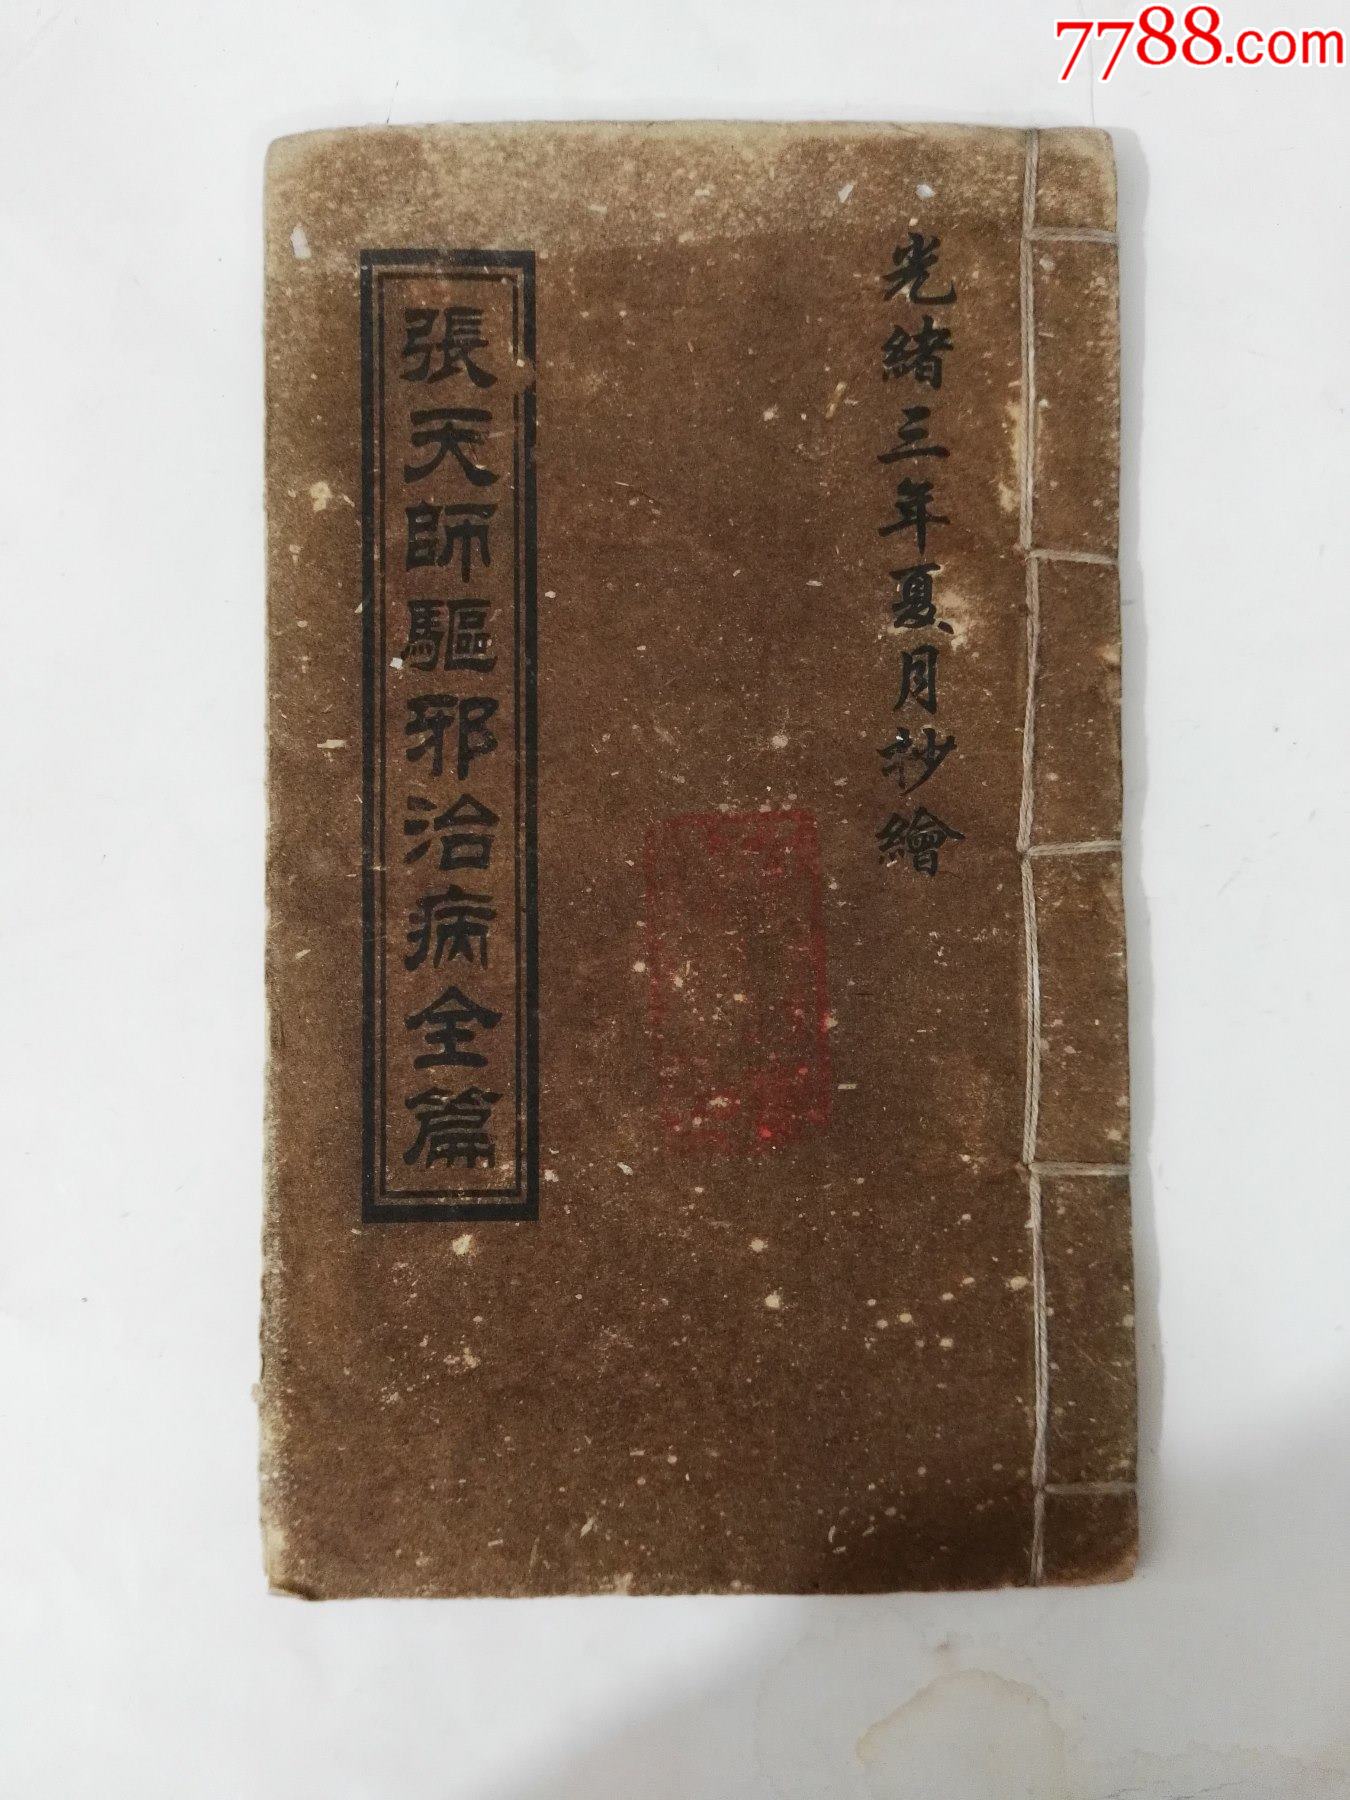 7788.com
光緒三年夏月抄繪
張天師驅邪治病全篇